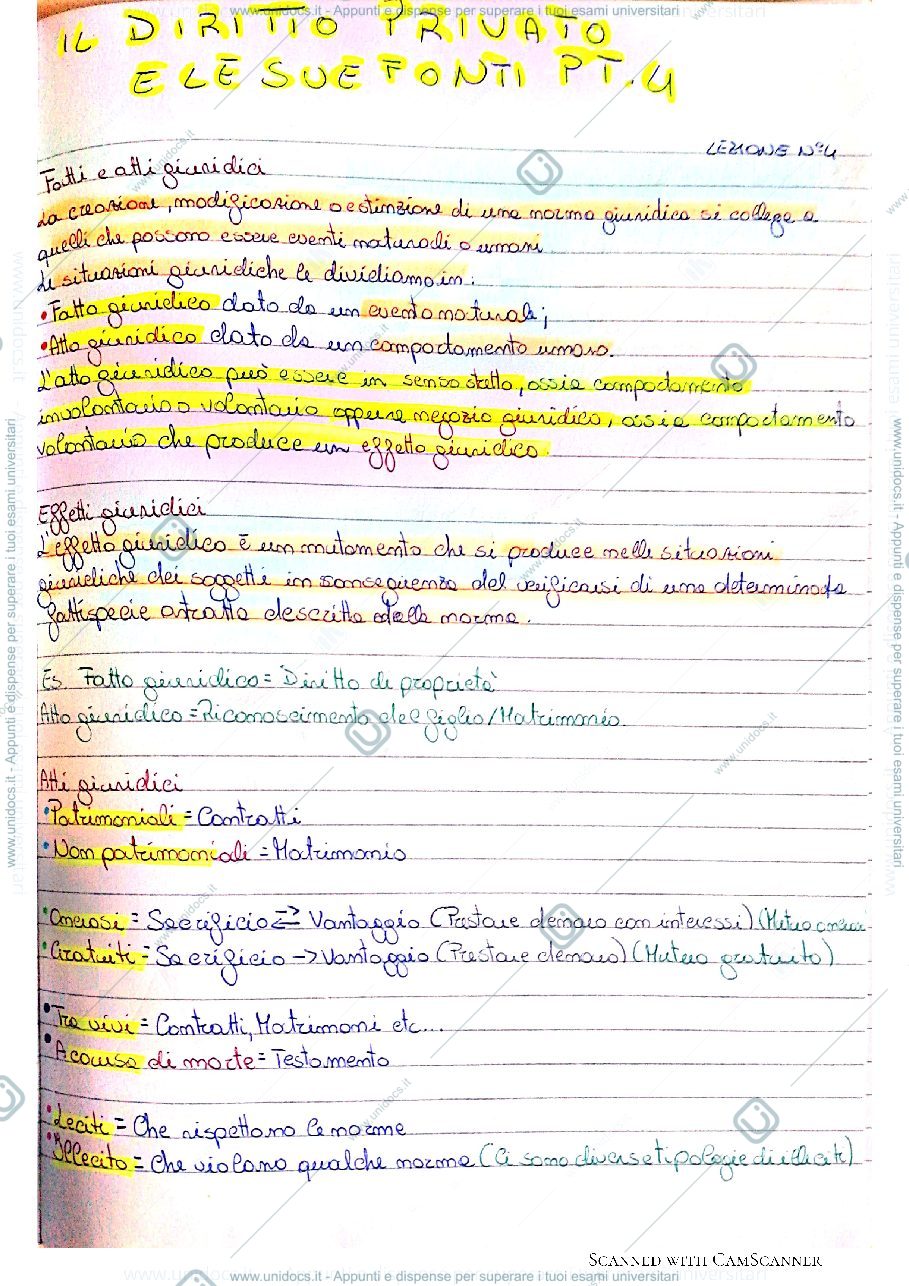 www.unidocs.it - Appunti e dispense per superare i tuoi esami universitari
IL DIRITTO PRIVATO
E LE SUE FONTI PT.4
LEZIONE N°4
Fatti e atti giuridici
La creazione, modificazione o estinzione di una norma giuridica si collega a
quelli che possono essere eventi naturali o umani.
Le situazioni giuridiche le dividiamo in:
•Fatto giuridico dato da un evento naturale;
•Atto giuridico dato da un comportamento umano.
L'atto giuridico può essere in senso stretto, ossia comportamento
involontario o volontario oppure negozio giuridico, ossia comportamento
volontario che produce un effetto giuridico.
Effetti giuridici
L'effetto giuridico è un mutamento che si produce nelle situazioni
giuridiche dei soggetti in conseguenza del verificarsi di una determinata
fattispecie astratta descritta dalla norma.
Es. Fatto giuridico = Diritto di proprietà
Atto giuridico = Riconoscimento del figlio/Matrimonio
Atti giuridici
•Patrimoniali = Contratti
•Non patrimoniali = Matrimonio
•Onerosi = Sacrificio ⇄ Vantaggio (Prestare denaro con interessi) (Mutuo
•Gratuiti = Sacrificio -> Vantaggio (Prestare denaro) (Mutuo gratuito)
•Tra vivi = Contratti, Matrimoni etc...
•A causa di morte = Testamento
•Leciti = Che rispettano le norme
•Illecito = Che violano qualche norma (Ci sono diverse tipologie di illeciti)
SCANNED WITH CAMSCANNER
www.unidocs.it - Appunti e dispense per superare i tuoi esami universitari